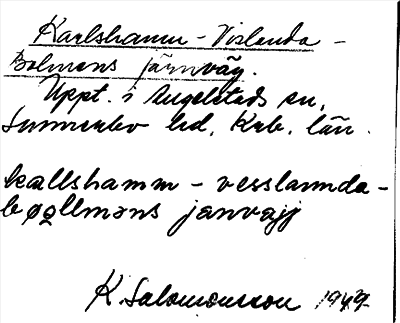 Karlshamn - Vislanda -
Bolmens järnväg.
Uppt. i Angelstads sn,
Sunnerbo hd, Krb. län.
kallshamm - vesslannda -
bøllməns janvajj
K. Salomonsson 1949